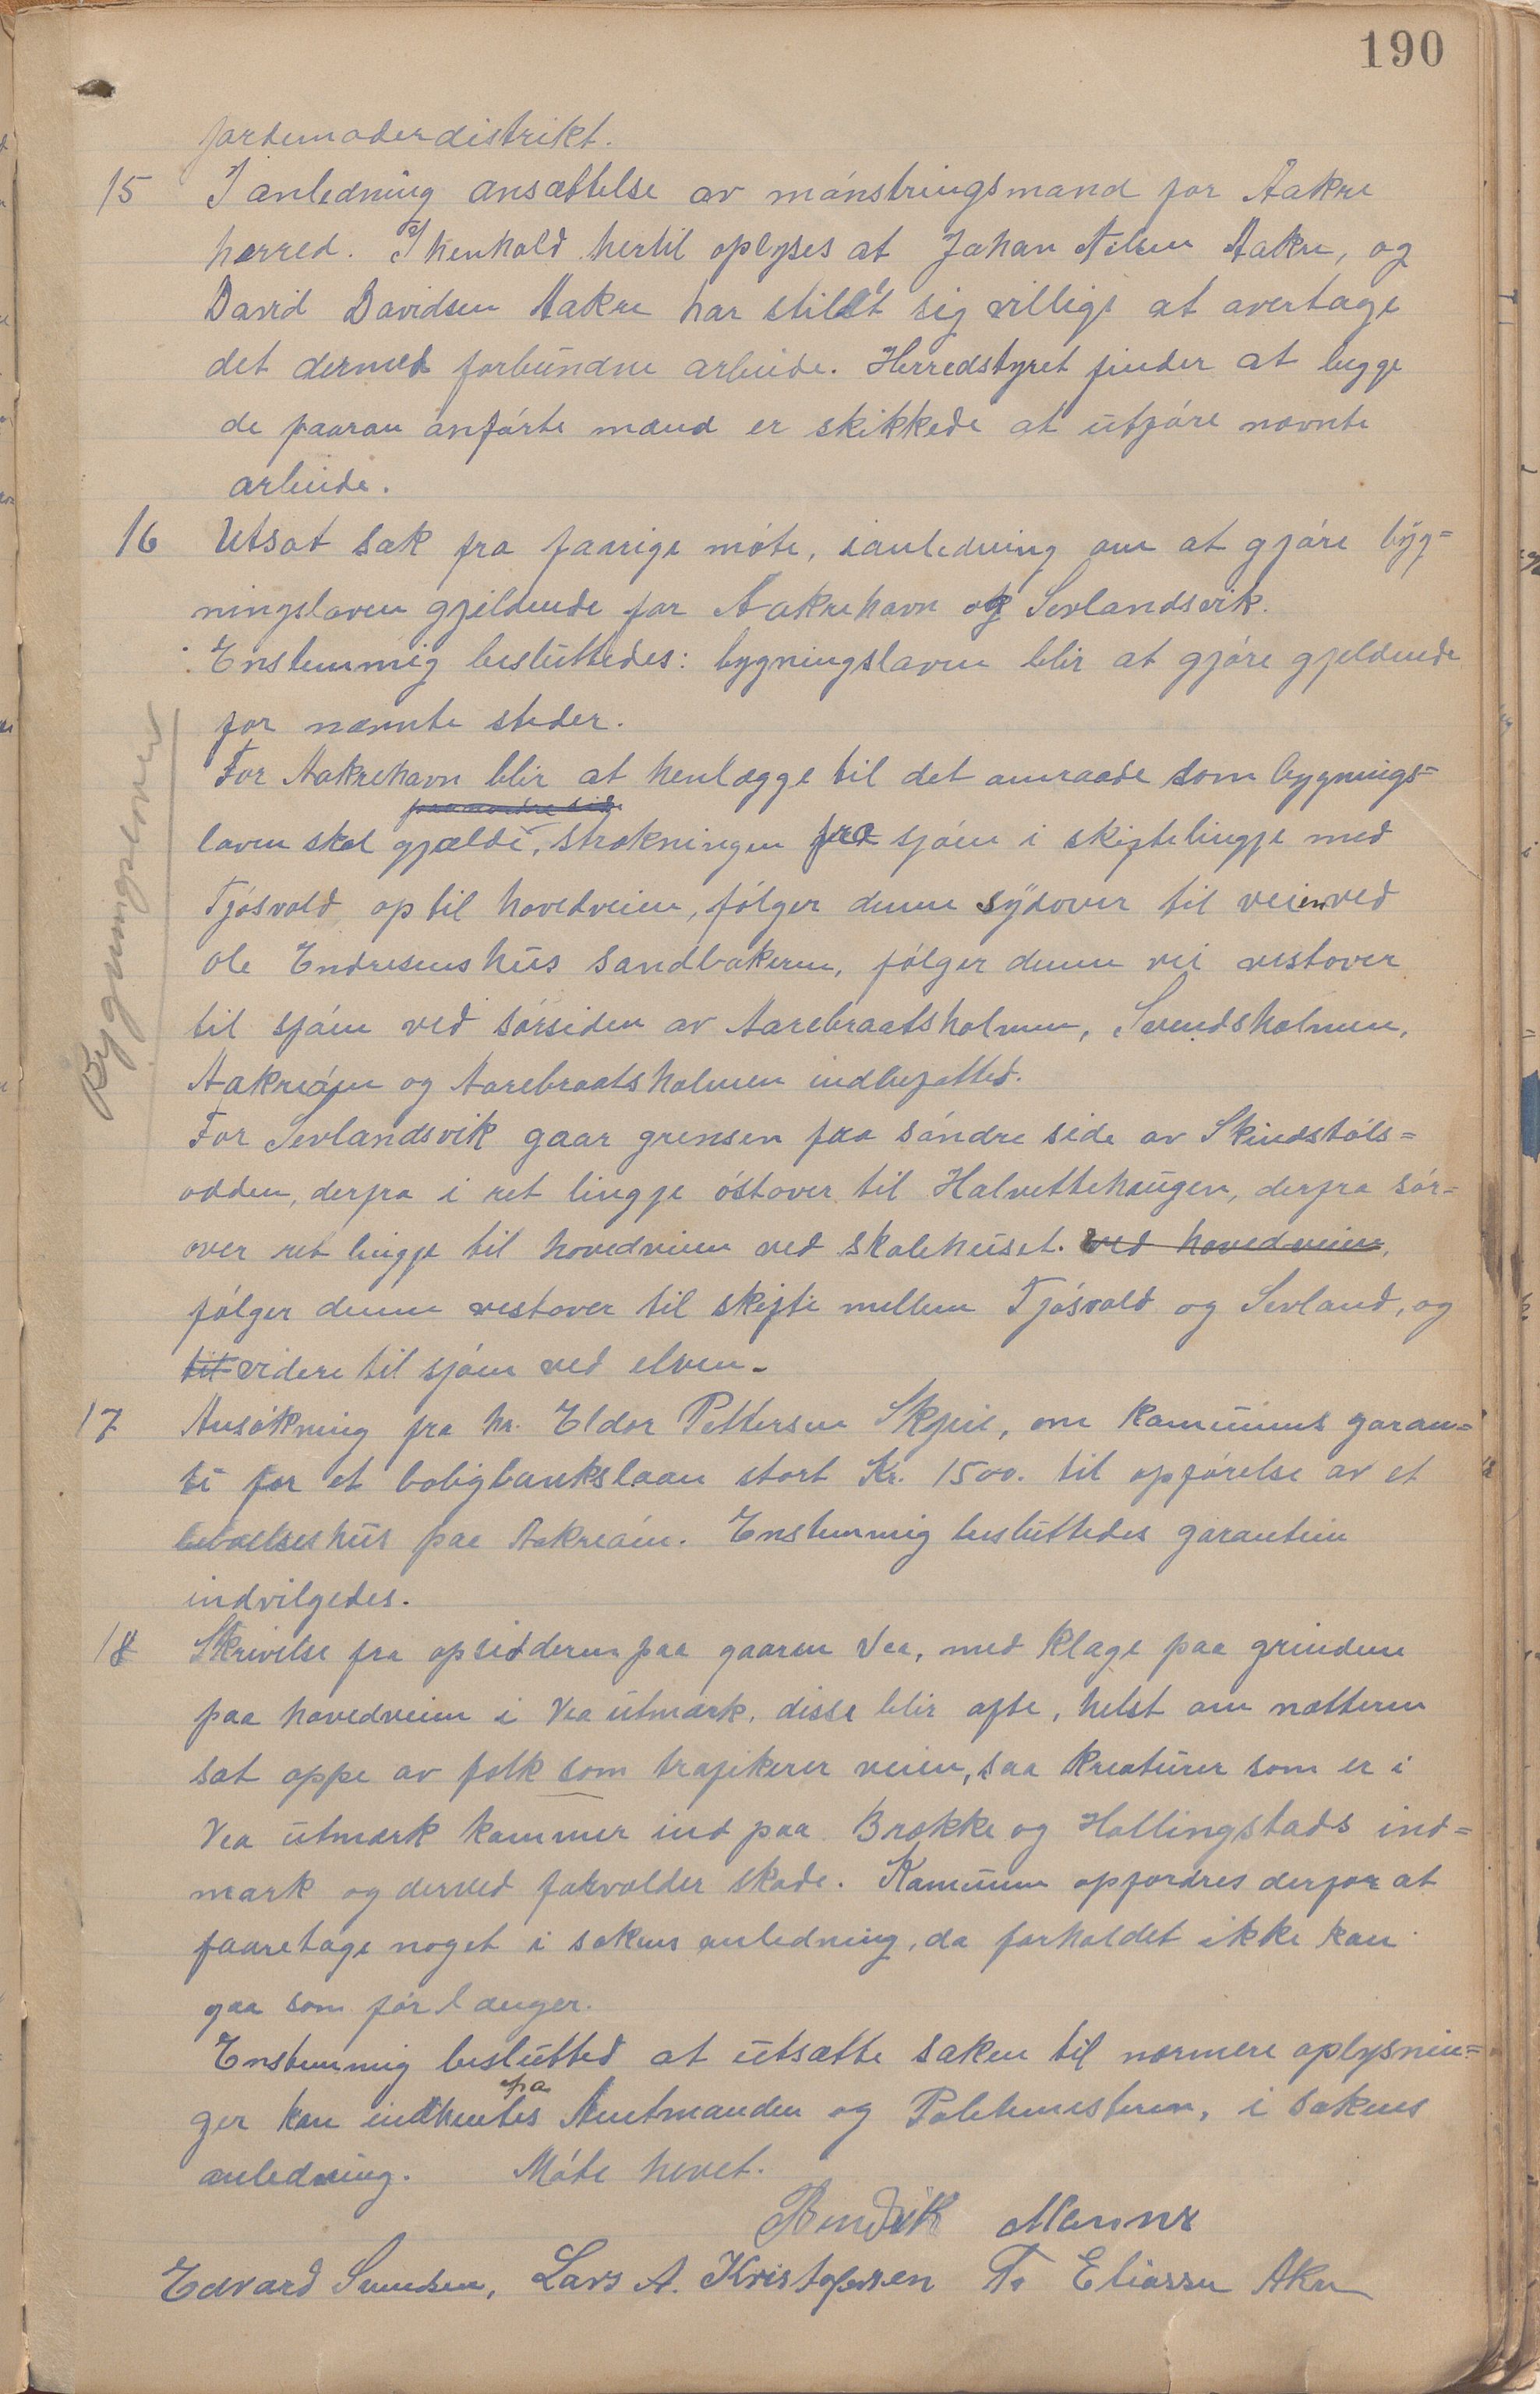 190
jordemoderdistrikt.
15 I anledning ansættelse av mónstringsmand for Aakre
herred. I henhold hertil oplyses at Johan Nilsen Aakre, og
David Davidsen Aakre har stillet sig villige at overtage
det dermed forbundne arbeide. Herredstyret finder at begge
de paaran anfórte mænd er skikkede at utfóre nævnte
arbeide.
16 Utsat sak fra forrige móte, ianledning om at gjóre byg=
ningsloven gjeldende for Aakrehavn og Sevlandsvik.
Enstemmig besluttedes: bygningsloven blir at gjóre gjeldende
for nævnte steder.
Bygningsloven
For Aakrehavn blir at henlægge til det omraade som bygnings=
paa nordre side
loven skal gjælde, strækningen fra sjóen i skiftelingje med
Tjósvold op til hovedveien, fólger denne sydover til veien ved
Ole Endresens hus Sandbakeren, fólger denne vei vestover
til sjóen ved sórsiden av Aarebraatsholmen, Svendsholmen,
Aakreóen og Aarebraatsholmen indbefatted.
For Sevlandsvik gaar grensen fra sóndre side av Skindstóls=
odden, derfra i ret lingje óstover til Halvettehaugen, derfra sór=
over ret lingje til hovedveien ved skolehuset. ved hovedveien,
fólger denne vestover til skifte mellem Tjósvold og Sevland, og
til videre til sjóen ved elven.
17 Ansókning fra hr. Eldor Pettersen Skjeie, om komunens garan=
ti for et boligbankslaan stort Kr. 1500. til opfórelse av et
beboelseshus paa Aakreóen. Enstemmig besluttedes garantien
indvilgedes.
18 Skrivelse fra opsidderen paa gaaren Vea, med klage paa grindene
paa hovedveien i Vea utmark, disse blir ofte, helst om nætteren
sat oppe av folk som trafikerer veien, saa kreaturer som er i
Vea utmark kommer ind paa Brække og Hollingstads ind=
mark og derved forvolder skade. Komunen opfordres derfor at
foaretage noget i sakens anledning, da forholdet ikke kan
gaa som fór længer.
Enstemmig beslutted at utsætte saken til nærmere oplysnin=
fra
ger kan indhentes Amtmanden og Politimesteren, i sakens
anledning. Móte hevet.
Bendik Mannes
Edvard Svendsen, Lars A. Kristofersen T. Eliassen Akre